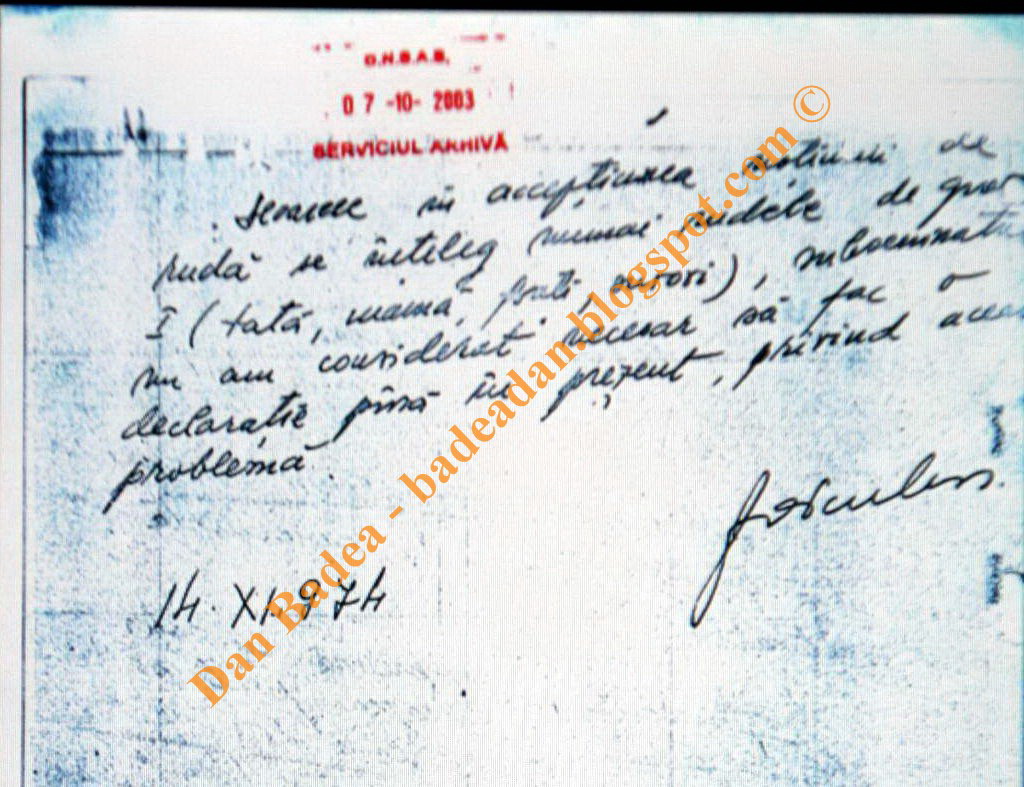 D.H.S.A.S.
07-10-2003
SERVICIUL ARHIVĂ
în accepțiunea de
rudă se înțeleg numai rudele de grad
I (tată, mamă, frați, surori),
nu am considerat necesar să fac o
declarație pînă în prezent, privind
problemă.
14. XI. 974
Dan Badea - badeadan.blogspot.com ©